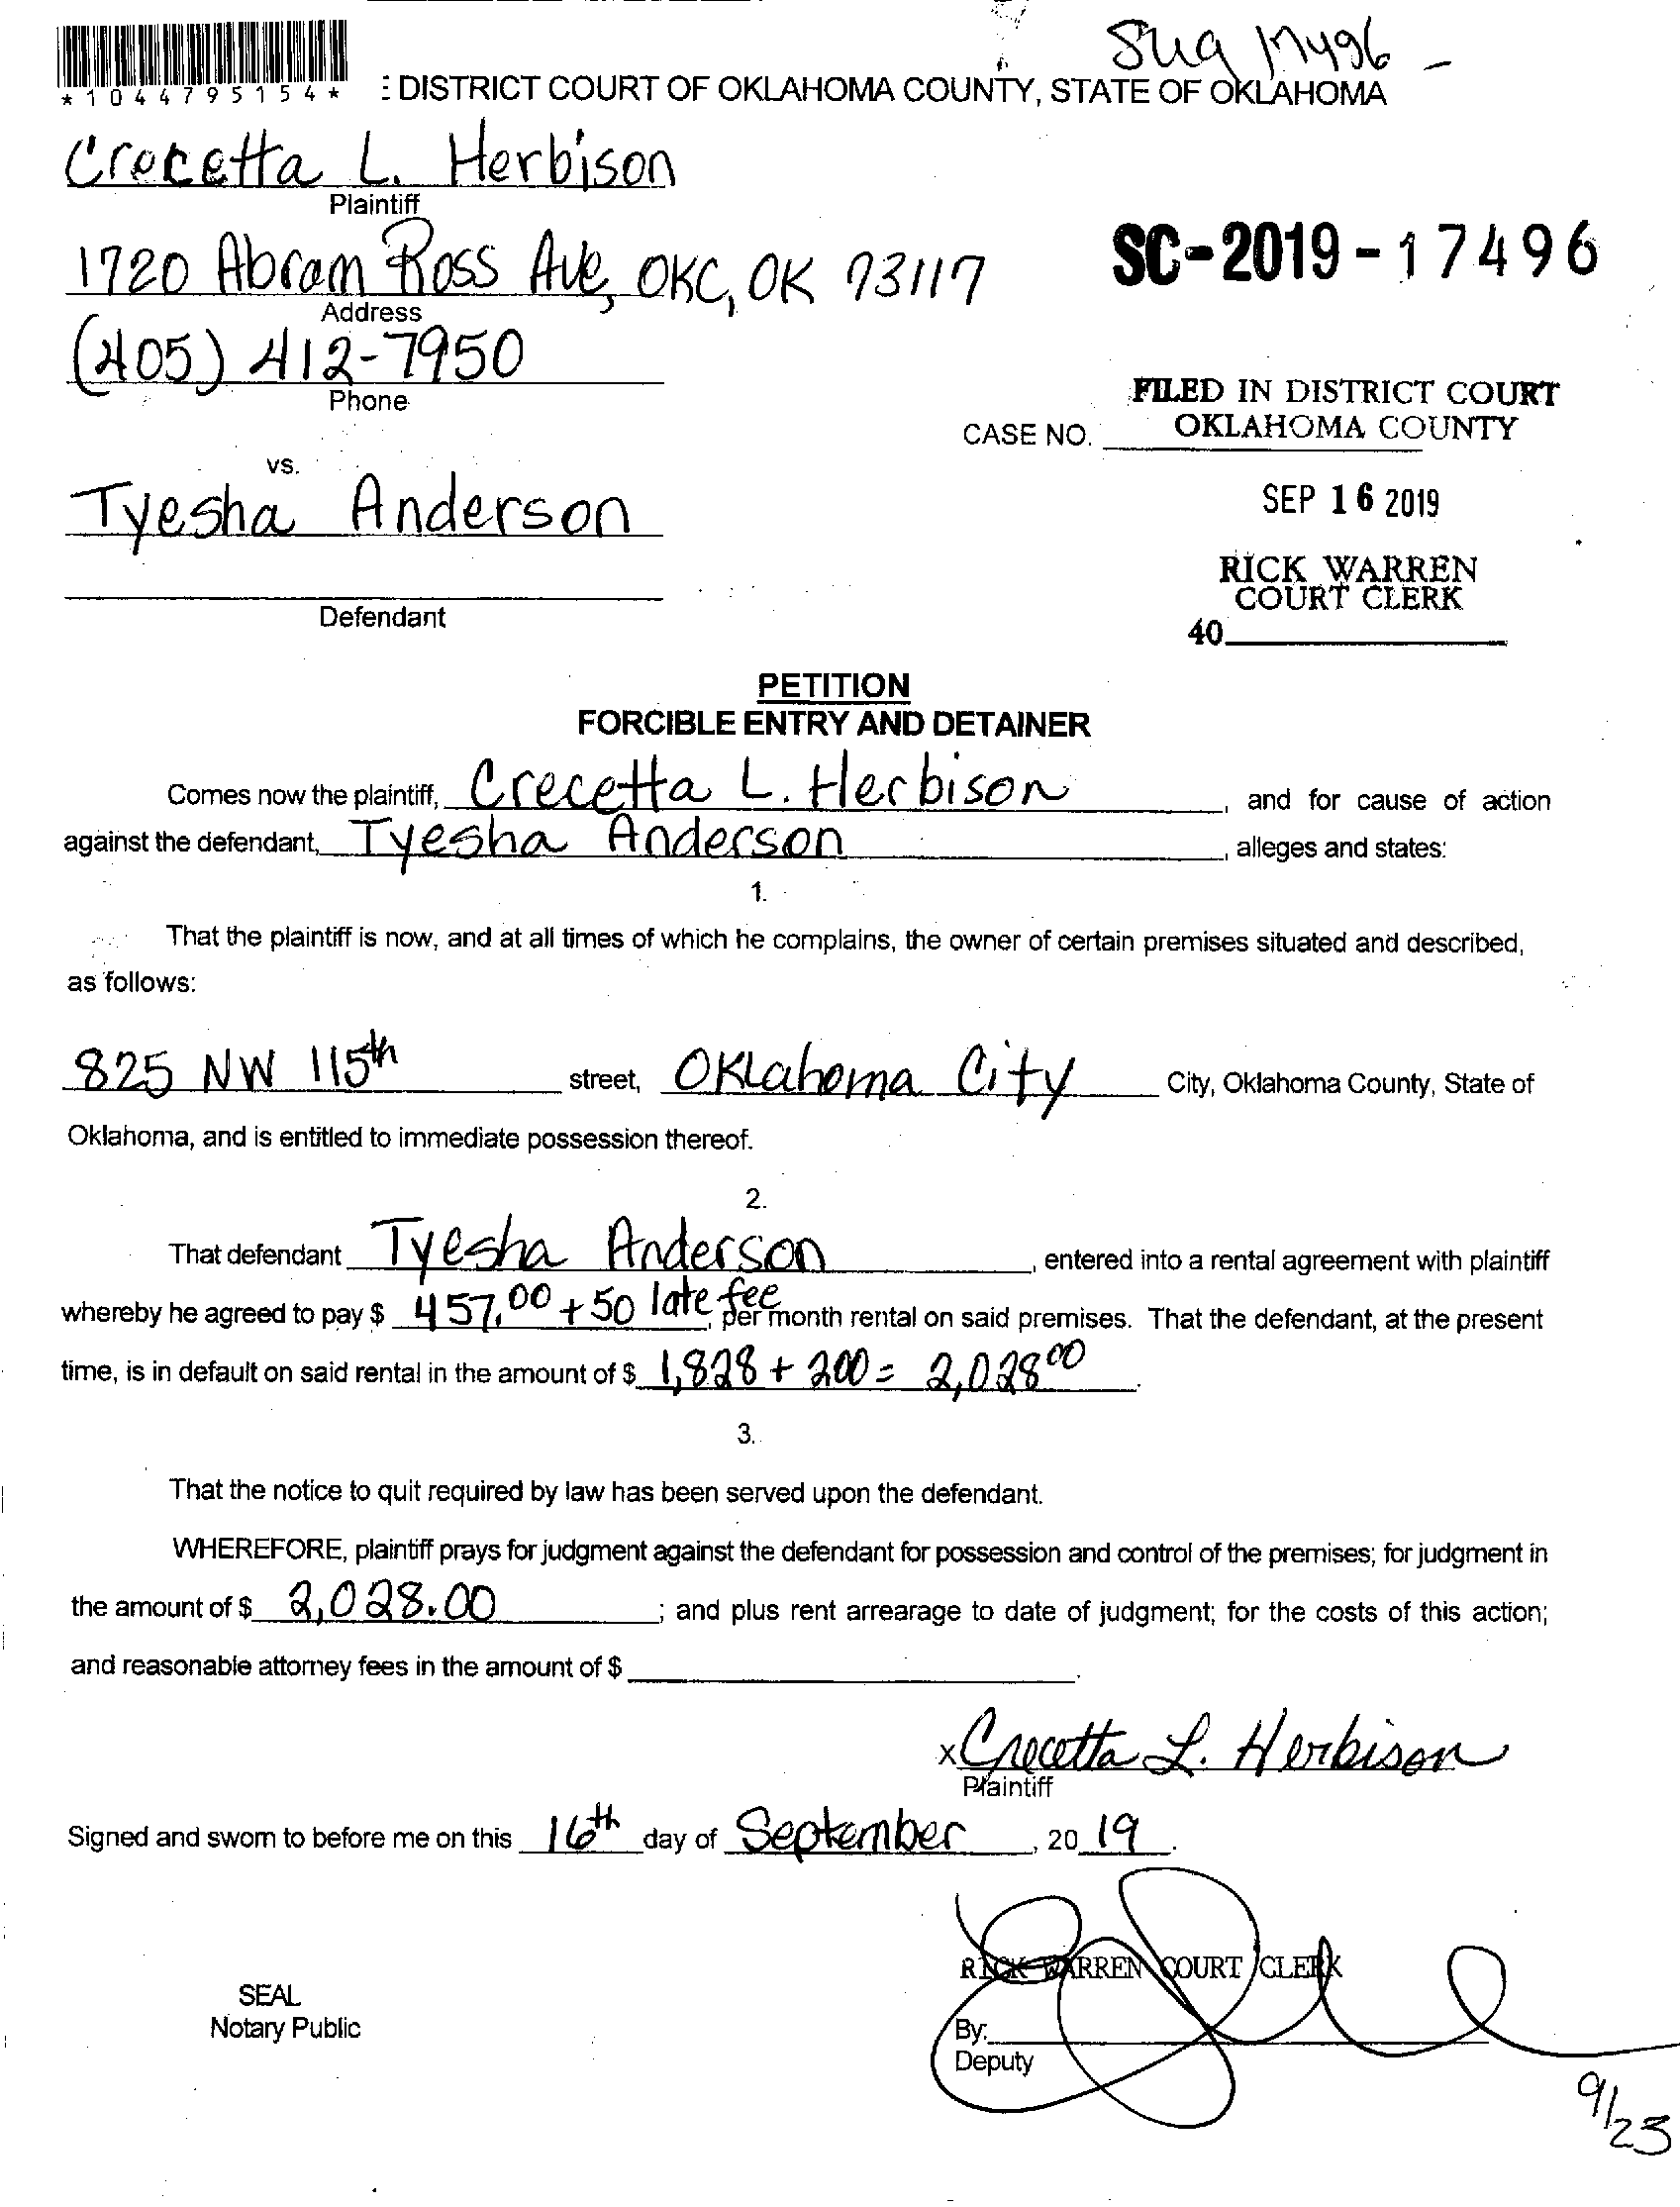 17496 -
*1044795154*
: DISTRICT COURT OF OKLAHOMA COUNTY, STATE OF OKLAHOMA
Crecetta L. Herbison
Plaintiff
1720 Abram Ross Ave, OKC, OK 73117
SC-2019-17496
Address
(405) 412-7950
Phone
FILED IN DISTRICT COURT
OKLAHOMA COUNTY
CASE NO.
vs.
Tyesha Anderson
SEP 16 2019
RICK WARREN
COURT CLERK
Defendant
40
PETITION
FORCIBLE ENTRY AND DETAINER
Comes now the plaintiff, Crecetta L. Herbison, and for cause of action
against the defendant, Tyesha Anderson, alleges and states:
1.
That the plaintiff is now, and at all times of which he complains, the owner of certain premises situated and described,
as follows:
825 NW 115th street, Oklahoma City City, Oklahoma County, State of
Oklahoma, and is entitled to immediate possession thereof.
2.
That defendant Tyesha Anderson, entered into a rental agreement with plaintiff
whereby he agreed to pay $ 457.00 + 50 late fee, per month rental on said premises. That the defendant, at the present
time, is in default on said rental in the amount of $ 1,828 + 200 = 2,028.00.
3.
That the notice to quit required by law has been served upon the defendant.
WHEREFORE, plaintiff prays for judgment against the defendant for possession and control of the premises; for judgment in
the amount of $ 2,028.00; and plus rent arrearage to date of judgment; for the costs of this action;
and reasonable attorney fees in the amount of $.
x Crecetta L. Herbison
Plaintiff
Signed and sworn to before me on this 16th day of September, 20 19.
RICK WARREN COURT CLERK
SEAL
Notary Public
By:
Deputy
9/23